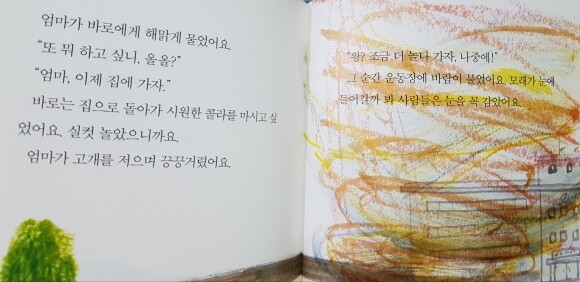 엄마가 바로에게 해맑게 물었어요.
“또 뭐 하고 싶니, 올올?”
“엄마, 이제 집에 가자.”
바로는 집으로 돌아가 시원한 콜라를 마시고 싶
었어요. 실컷 놀았으니까요.
엄마가 고개를 저으며 끙끙거렸어요.
“왕? 조금 더 놀다 가자, 나중에!”
그 순간 운동장에 바람이 불었어요. 모래가 눈에
들어갈까 봐 사람들은 눈을 꼭 감았어요.